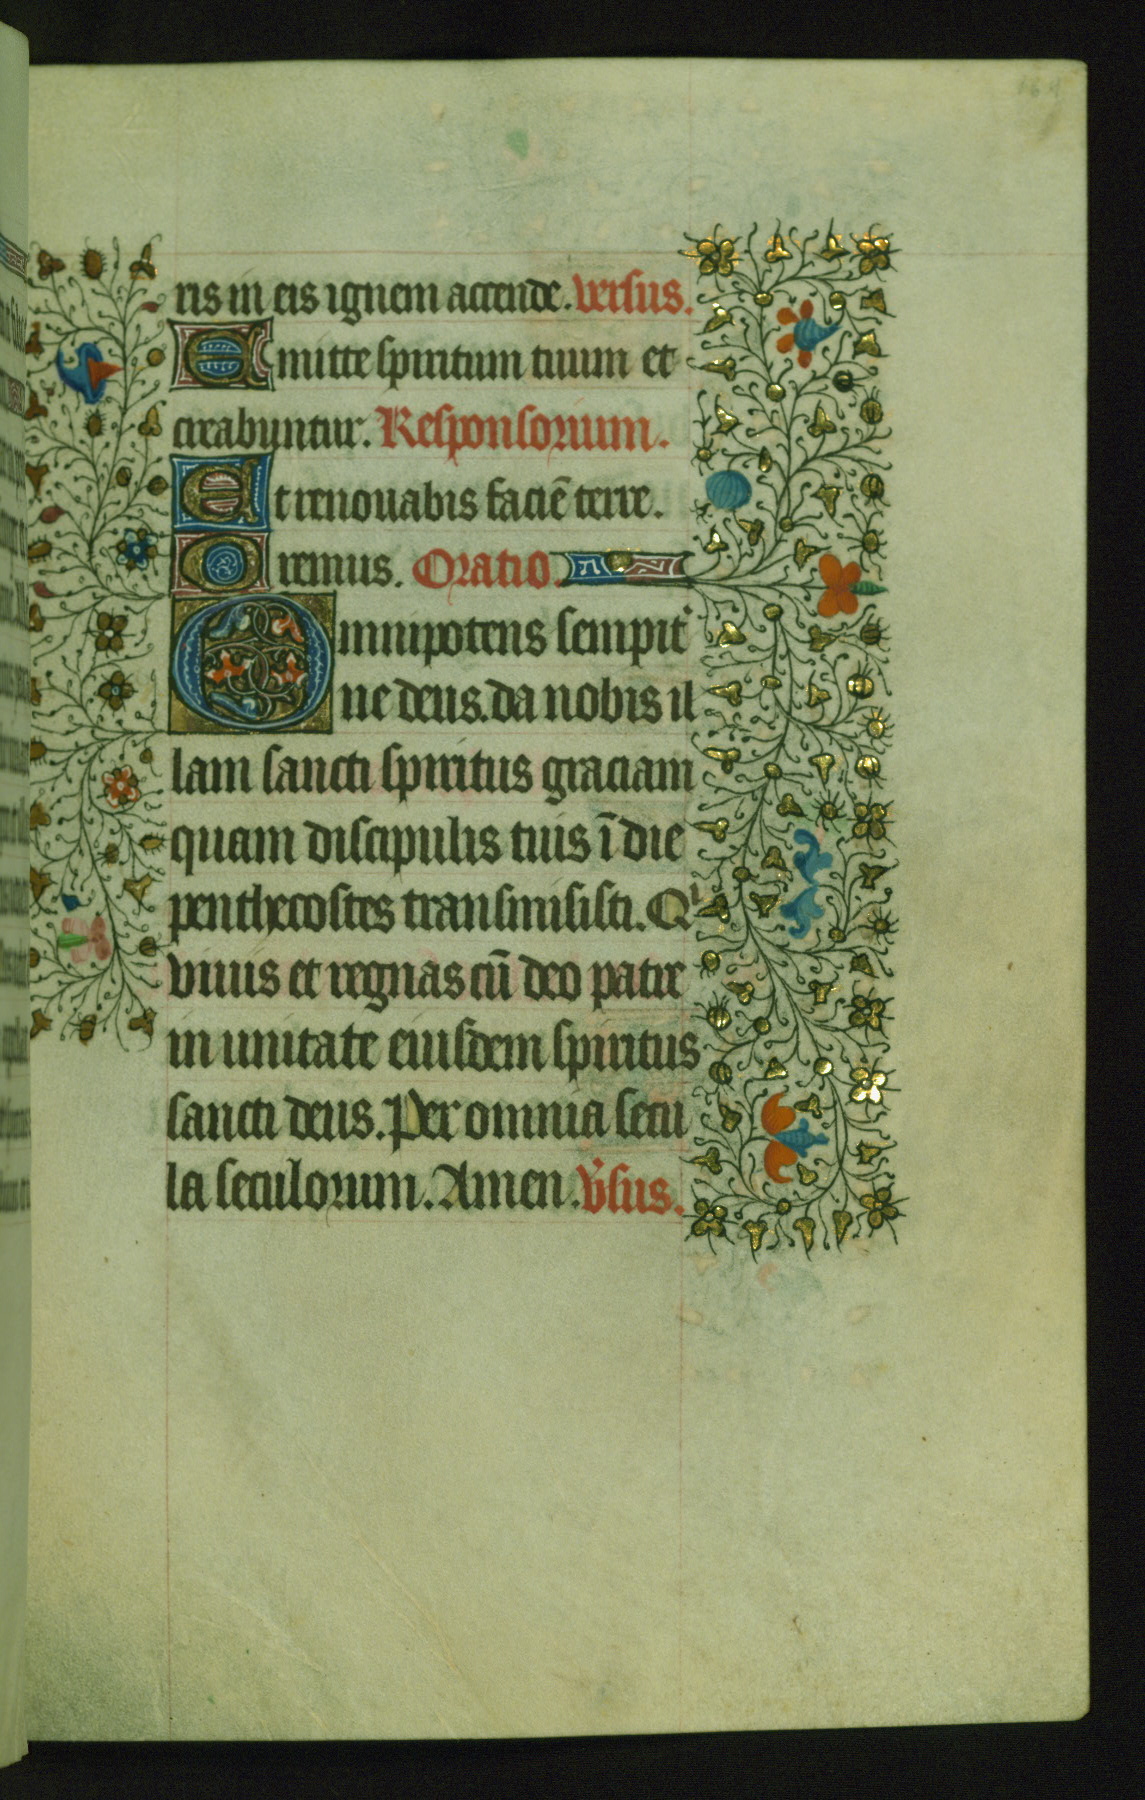 ris in eis ignem accende. versus.
Emitte spiritum tuum et
creabuntur. Responsorium.
Et renouabis faciē terre.
Oremus. Oratio.
Omnipotens sempit'
ne deus. da nobis il
lam sancti spiritus graciam
quam discipulis tuis ī die
penthecostes transmisisti. Qⁱ
viuis et regnas cū deo patre
in unitate eiusdem spiritus
sancti deus. Per omnia secu
la seculorum. Amen. v'sus.